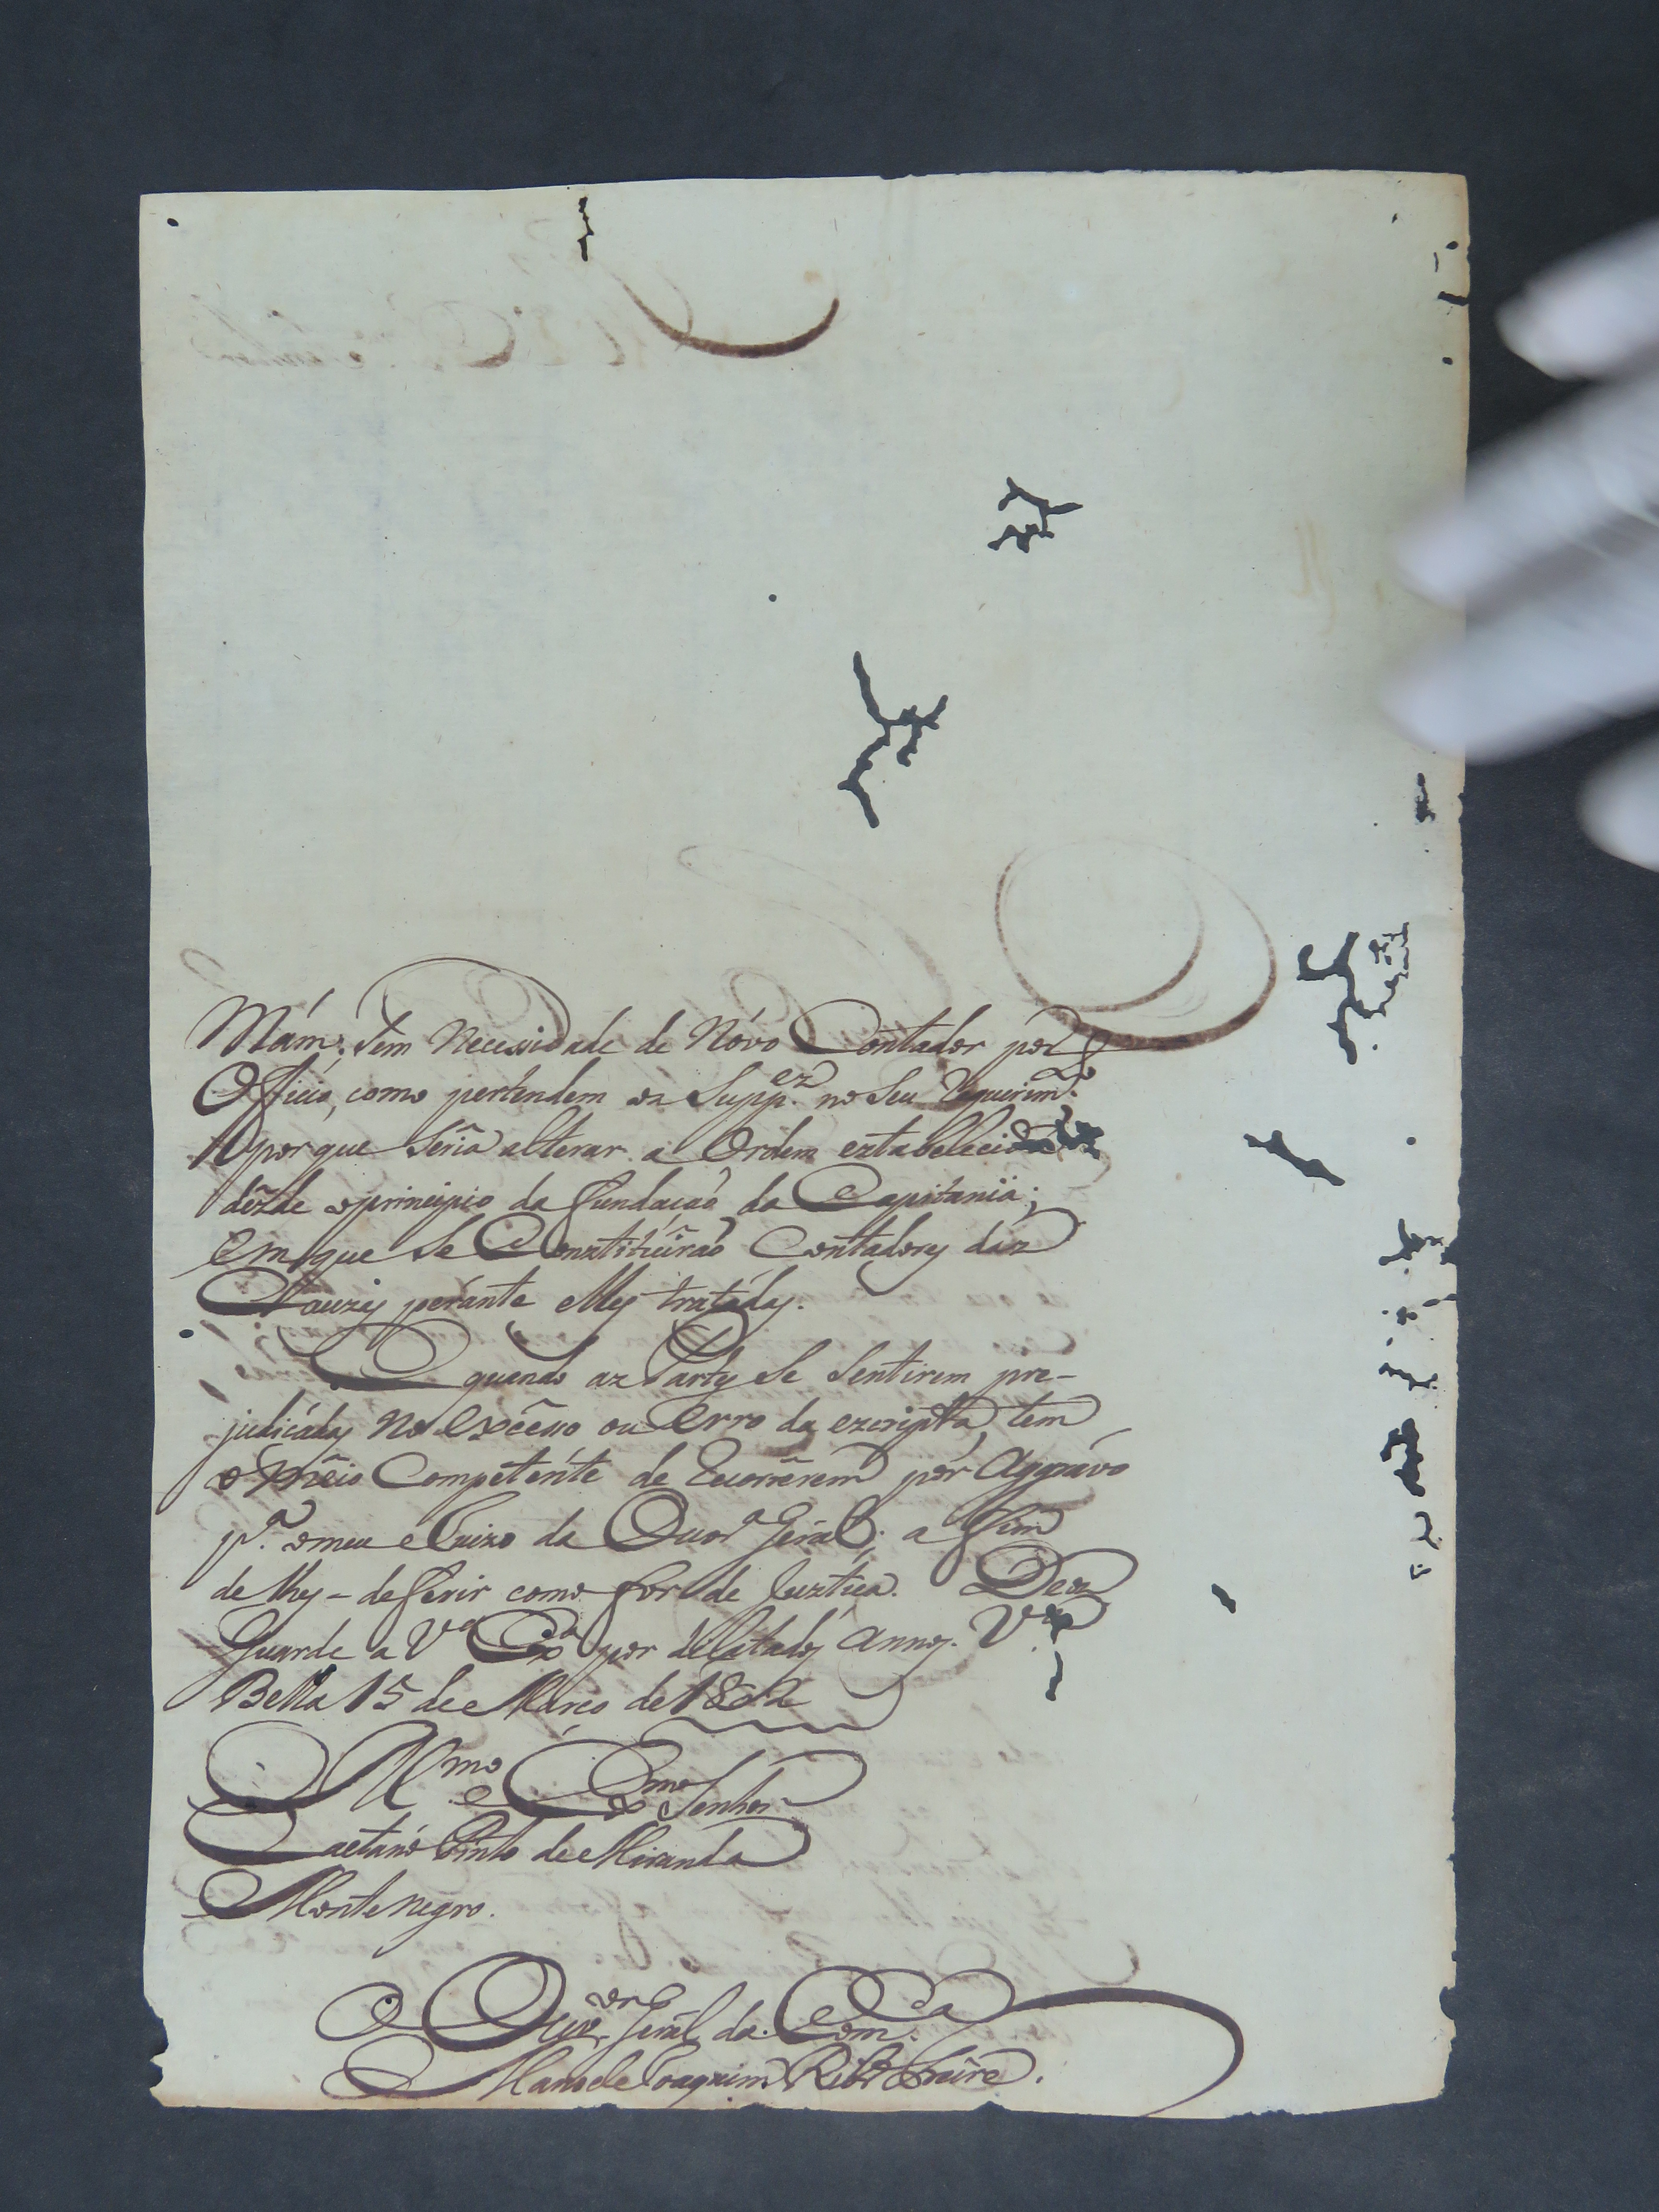 Mám: Tem Necessidade de Nóvo Contador por
Officio, como pertendem oz Supp.ez no Seu Requerim.to
porque sería alterar a Ordem eztabelecida
dezde oprincipio da fundaçaõ da Capitania;
Em que Se Conztituiraõ Contadorez daz
Cauzaz peránte ellez tratádaz.
E quando az Partez Se Sentirem pre-
judicádaz No excésso ou Erro da ezcripta, tem
o Méio Competénte de Recorrêrem por Aggrávo
p.a omeu Juizo da Ouvr.a Geral; a fim
de lhez-deferir como for de Juztiça. Deoz
Guarde a V.a Ex.a por dilatadoz annoz. V.a
Bella 15 de Março de 1802
Ill.mo e Ex.mo Senhor
Caetáno Pinto de Miranda
Montenegro.
O Ouv.or Geral da Com.ca
Manoel Joaquim Ribr.o Freire.